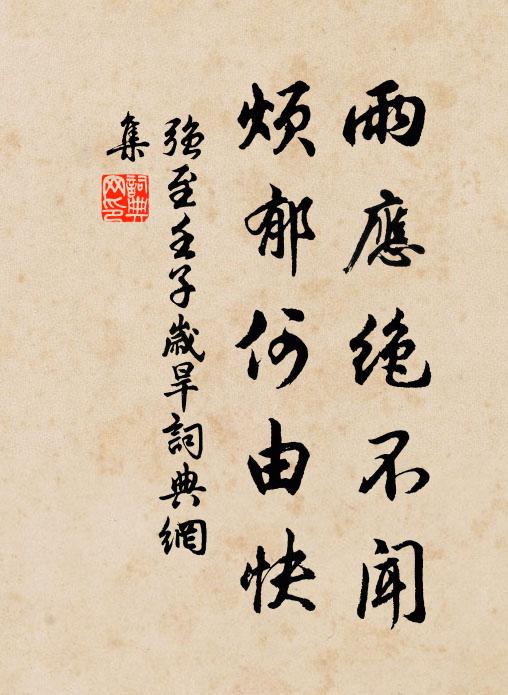 雨應绝不闻
烦郁何由快
强至壬子歲旱詞典網
集
詞典
网印